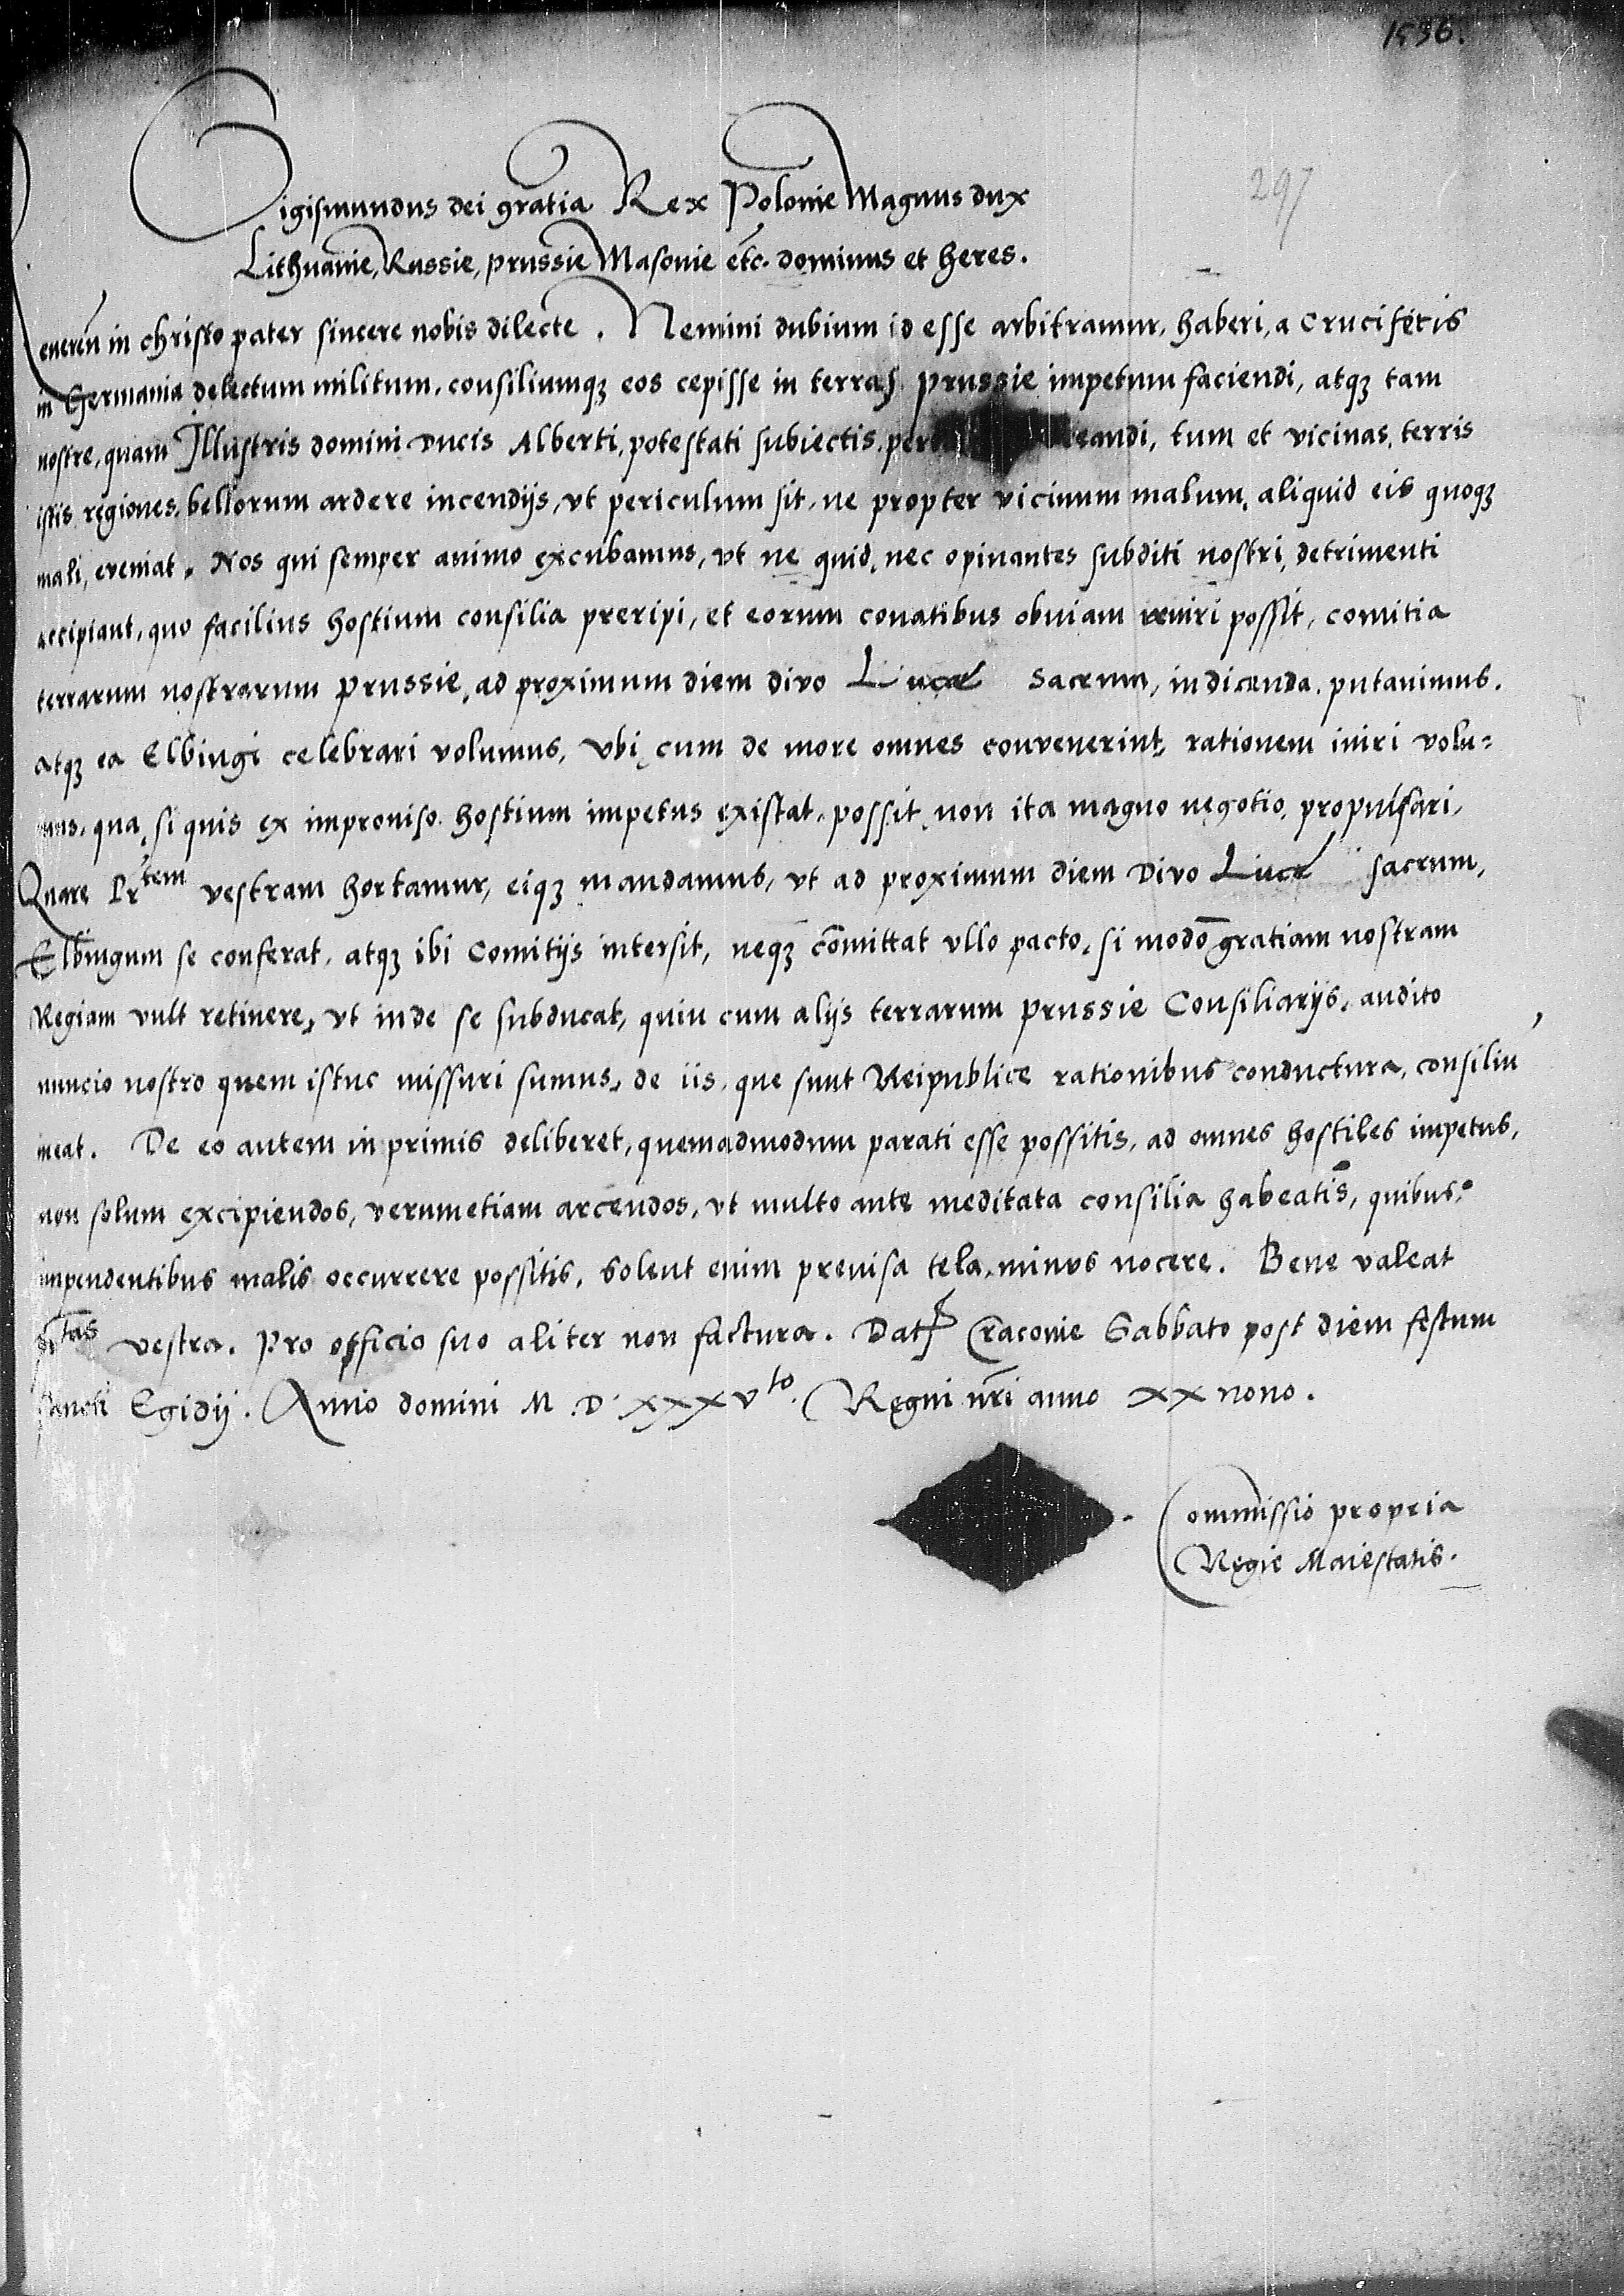 1536.
297
Sigismundus dei gratia Rex Polonie Magnus dux
Lithuanie, Russie, prussie Masonie etc. dominus et heres.
Reveren in christo pater sincere nobis dilecte. Nemini dubium id esse arbitramur, haberi, a Cruciferis
in Germania delectum militum, consiliumqz eos cepisse in terras prussie impetum faciendi, atqz tam
nostre, quam Illustris domini Ducis Alberti, potestati subiectis, per eandi, tum et vicinas, terris
istis regiones, bellorum ardere incendijs, vt periculum sit, ne propter vicinum malum, aliquid eis quoqz
mali, eveniat. Nos qui semper animo excubamus, vt ne quid, nec opinantes subditi nostri, detrimenti
accipiant, quo facilius hostium consilia preripi, et eorum conatibus obuiam veniri possit, comitia
terrarum nostrarum prussie, ad proximum diem divo Lucae Sacrum, indicenda, putavimus.
atqz ea Elbingi celebrari volumus, vbi cum de more omnes convenerint, rationem iniri volu=
mus, qua, si quis ex improviso hostium impetus existat, possit, non ita magno negotio, propulsari,
Quare Prtem vestram hortamur, eiqz mandamus, vt ad proximum diem Divo Luce sacrum,
Elbingum se conferat, atqz ibi Comitijs intersit, neqz comittat vllo pacto, si modo gratiam nostram
Regiam vult retinere, vt inde se subducat, quin cum alijs terrarum prussie Consiliarijs, audito
nuncio nostro quem istuc missuri sumus, de iis, que sunt Reipublice rationibus conductura, consiliu
ineat. De eo autem in primis deliberet, quemadmodum parati esse possitis, ad omnes hostiles impetus,
non solum excipiendos, verumetiam arcendos, vt multo ante meditata consilia habeatis, quibus
impendentibus malis occurrere possitis, Solent enim previsa tela, minus nocere. Bene valeat
Prtas vestra. Pro officio suo aliter non factura. Dat Cracovie Sabbato post diem festum
sancti Egidij. Anno domini M.D.XXXVto. Regni nri anno XX nono.
Commissio propria
Regie Maiestatis.